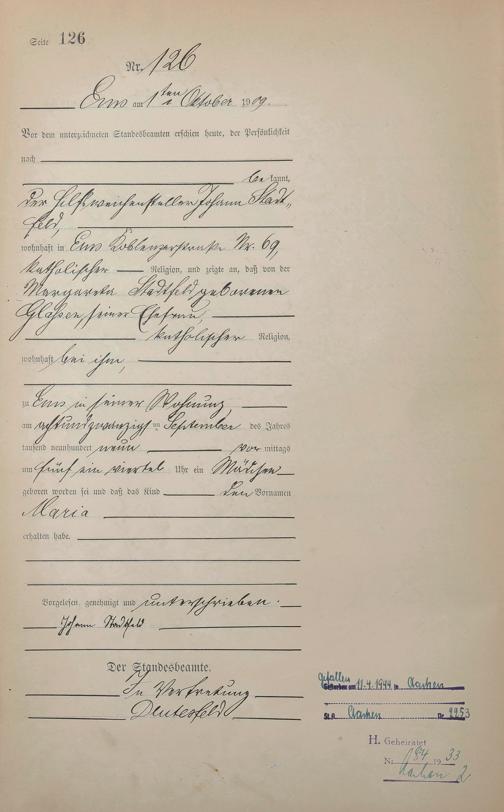 Seite 126
Nr. 126
Ems am 1ten Oktober 1909.
Vor dem unterzeichneten Standesbeamten erschien heute, der Persönlichkeit
nach
bekannt,
der Hilfsweichensteller Johann Stadt-
feld,
wohnhaft in Ems Koblenzerstraße Nr. 69,
katholischer Religion, und zeigte an, daß von der
Margareta Stadtfeld, geborenen
seiner Ehefrau,
katholischer Religion,
wohnhaft bei ihm,
zu Ems in seiner Wohnung
am achtundzwanzigsten September des Jahres
tausend neunhundert neun vormittags
um fünf ein viertel Uhr ein Mädchen
geboren worden sei und daß das Kind den Vornamen
Maria
erhalten habe.
Vorgelesen, genehmigt und unterschrieben.
Johann Stadtfeld
Der Standesbeamte.
In Vertretung
gefallen
Gestorben am 11.4.1944 in Aachen
St.A. Aachen Nr 2253
H. Geheiratet
Nr 684 1933
Aachen 2